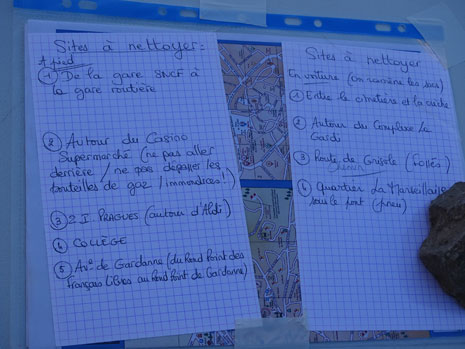 Sites à nettoyer :
A pied
① De la gare SNCF à
la gare routière
② Autour du Casino
Supermarché (ne pas aller
derrière / ne pas dégager les
bouteilles de gaz / immondices !)
③ 2 I PRAGUES (autour d'Aldi)
④ COLLÈGE
⑤ Av. de Gardanne (du Rond Point des
Français Libres au Rond Point de Gardanne)
Sites à nettoyer
En voiture (on ramène les sacs)
① Entre le cimetière et la crèche
② Autour du Complexe Le
Gardi
③ Route de (Collès)
④ Quartier La Marseillaise
sous le pont (pneu)